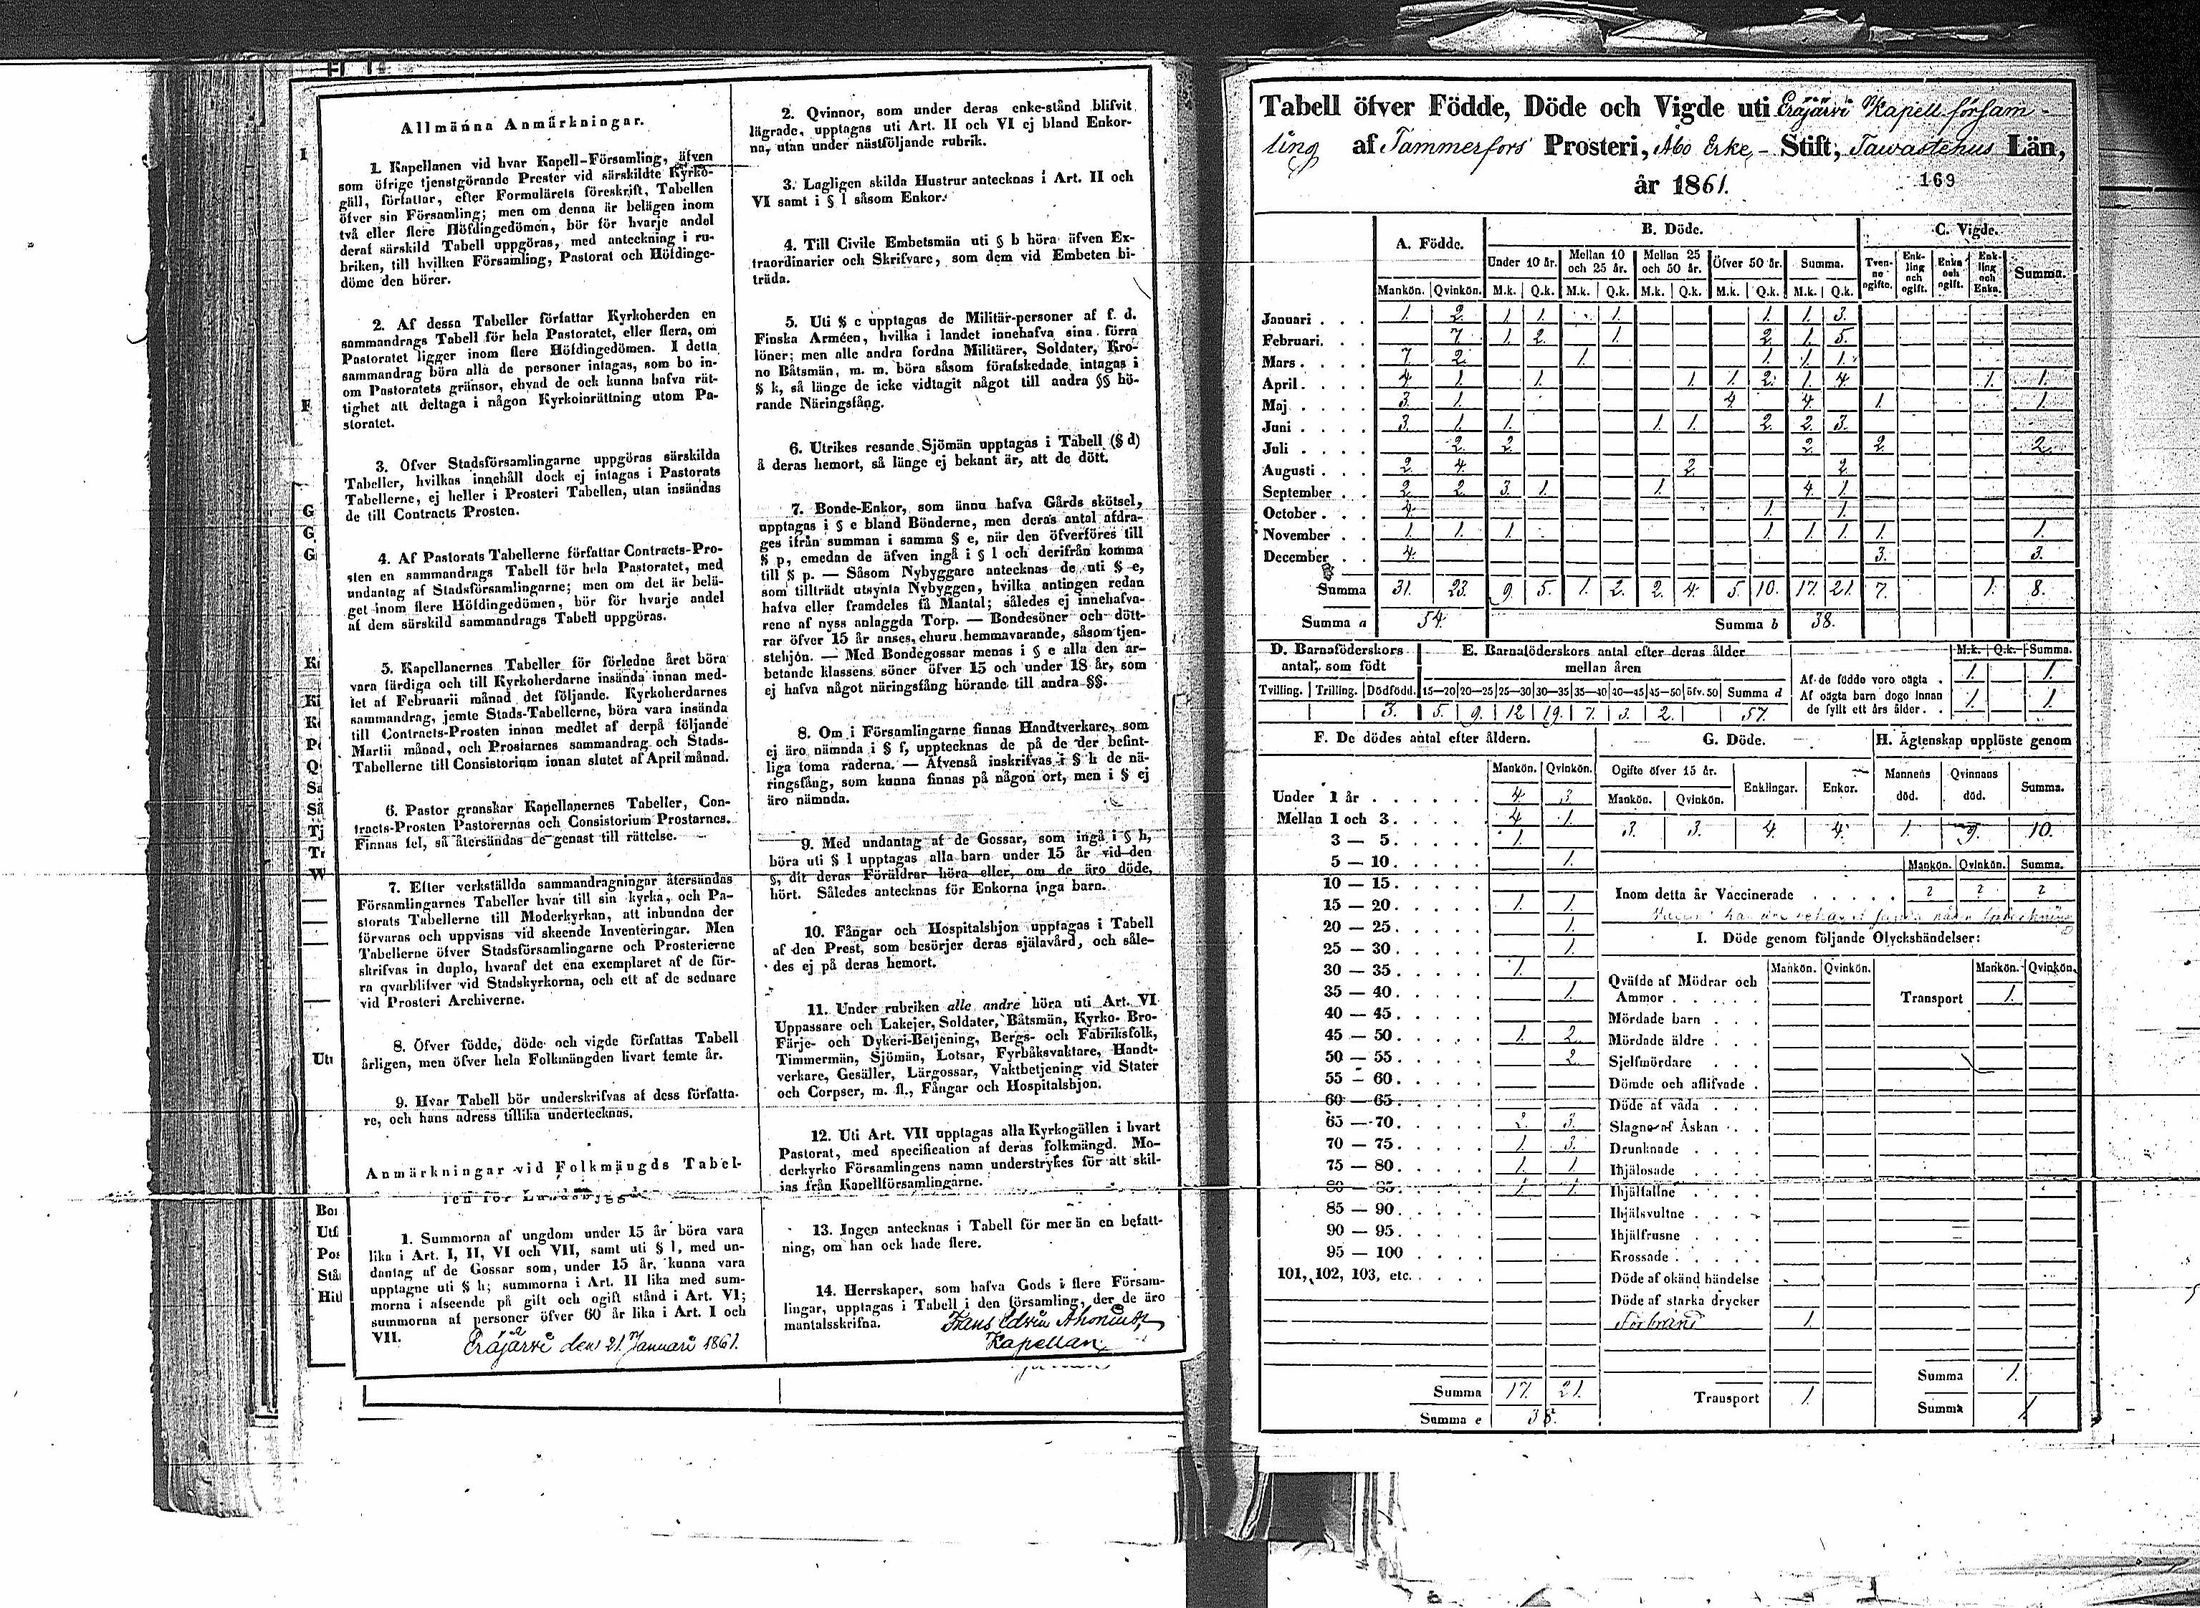 Allmänna Anmärkningar.
1. Kapellanen vid hvar Kapell-Församling, äfven
som öfrige tjenstgörande Prester vid särskildte Kyrko-
gäll, författar, efter Formulärets föreskrift, Tabellen
öfver sin Församling; men om denna är belägen inom
två eller flere Höfdingedömen, bör för hvarje andel
deraf särskild Tabell uppgöras, med anteckning i ru-
briken, till hvilken Församling, Pastorat och Höfdinge-
döme den hörer.
2. Af dessa Tabeller författar Kyrkoherden en
sammandrags Tabell för hela Pastoratet, eller flera, om
Pastoratet ligger inom flere Höfdingedömen. I detta
sammandrag böra alla de personer intagas, som bo in-
om Pastoratets gränsor, ehvad de ock kunna hafva rät-
tighet att deltaga i någon Kyrkoinrättning utom Pa-
storatet.
3. Öfver Stadsförsamlingarne uppgöras särskilda
Tabeller, hvilkas innehåll dock ej intages i Pastorats
Tabellerne, ej heller i Prosteri Tabellen, utan insändas
de till Contracts Prosten.
4. Af Pastorats Tabellerne författar Contracts-Pro-
sten en sammandrags Tabell för hela Pastoratet, med
undantag af Stadsförsamlingarne; men om det är belä-
get inom flere Höfdingedömen, bör för hvarje andel
af dem särskild sammandrags Tabell uppgöras.
5. Kapellanernes Tabeller för förledne året böra
vara färdiga och till Kyrkoherdarne insända innan med-
let af Februarii månad det följande. Kyrkoherdarnes
sammandrag, jemte Stads-Tabellerne, böra vara insända
till Contracts-Prosten innan medlet af derpå följande
Martii månad, och Prostarnes sammandrag och Stads-
Tabellerne till Consistorium innan slutet af April månad.
6. Pastor granskar Kapellanernes Tabeller, Con-
tracts-Prosten Pastorernas och Consistorium Prostarnes.
Finnas fel, så återsändas de genast till rättelse.
7. Efter verkställda sammandragningar återsändas
Församlingarnes Tabeller hvar till sin kyrka, och Pa-
storats Tabellerne till Moderkyrkan, att inbundna der
förvaras och uppvisas vid skeende Inventeringar. Men
Tabellerne öfver Stadsförsamlingarne och Prosterierne
skrifvas in duplo, hvaraf det ena exemplaret af de för-
ra qvarblifver vid Stadskyrkorna, och ett af de sednare
vid Prosteri Archiverne.
8. Öfver födde, döde och vigde författas Tabell
årligen, men öfver hela Folkmängden hvart femte år.
9. Hvar Tabell bör underskrifvas af dess författa-
re, och hans adress tillika undertecknas.
Anmärkningar vid Folkmängds Tabel-
len för Landsbygge
1. Summorna af ungdom under 15 år böra vara
lika i Art. I, II, VI och VII, samt uti § l, med un-
dantag af de Gossar som, under 15 år, kunna vara
upptagne uti § h; summorna i Art. II lika med sum-
morna i afseende på gift och ogift stånd i Art. VI;
summorna af personer öfver 60 år lika i Art. I och
VII.
Eräjärvi den 21 Januari 1861.
2. Qvinnor, som under deras enke-stånd blifvit
lägrade, upptagas uti Art. II och VI ej bland Enkor-
na, utan under nästföljande rubrik.
3. Lagligen skilda Hustrur antecknas i Art. II och
VI samt i § l såsom Enkor.
4. Till Civile Embetsmän uti § b höra äfven Ex-
traordinarier och Skrifvare, som dem vid Embeten bi-
träda.
5. Uti § c upptagas de Militär-personer af f. d.
Finska Arméen, hvilka i landet innehafva sina förra
löner; men alla andra fordna Militärer, Soldater, Kro-
no Båtsmän, m. m. böra såsom förafskedade intagas i
§ k, så länge de icke vidtagit något till andra §§ hö-
rande Näringsfång.
6. Utrikes resande Sjömän upptagas i Tabell (§ d)
å deras hemort, så länge ej bekant är, att de dött.
7. Bonde-Enkor, som ännu hafva Gårds skötsel,
upptagas i § e bland Bönderne, men deras antal afdra-
ges ifrån summan i samma § e, när den öfverföres till
§ p, emedan de äfven ingå i § l och derifrån komma
till § p. — Såsom Nybyggare antecknas de uti § e,
som tillträdt utsynta Nybyggen, hvilka antingen redan
hafva eller framdeles få Mantal; således ej innehafva-
rene af nyss anlaggda Torp. — Bondesöner och dött-
rar öfver 15 år anses, churu hemmavarande, såsom tjen-
stehjon. — Med Bondegossar menas i § e alla den ar-
betande klassens söner öfver 15 och under 18 år, som
ej hafva något näringsfång hörande till andra §§.
8. Om i Församlingarne finnas Handtverkare, som
ej äro nämnda i § f, upptecknas de på de der befint-
liga toma raderna. — Äfvenså inskrifvas i § h de nä-
ringsfång, som kunna finnas på någon ort, men i § ej
äro nämnda.
9. Med undantag af de Gossar, som ingå i § h,
böra uti § l upptagas alla barn under 15 år vid den
§, dit deras Föräldrar höra eller, om de äro döde,
hört. Således antecknas för Enkorna inga barn.
10. Fångar och Hospitalshjon upptagas i Tabell
af den Prest, som besörjer deras själavård, och såle-
des ej på deras hemort.
11. Under rubriken alle andre höra uti Art. VI
Uppassare och Lakejer, Soldater, Båtsmän, Kyrko- Bro-
Färje- och Dykeri-Betjening, Bergs- och Fabriksfolk,
Timmermän, Sjömän, Lotsar, Fyrbåksvaktare, Handt-
verkare, Gesäller, Lärgossar, Vaktbetjening vid Stater
och Corpser, m. fl., Fångar och Hospitalshjon.
12. Uti Art. VII upptagas alla Kyrkogällen i hvart
Pastorat, med specification af deras folkmängd. Mo-
derkyrko Församlingens namn understrykes för att skil-
jas från Kapellförsamlingarne.
13. Ingen antecknas i Tabell för mer än en befatt-
ning, om han ock hade flere.
14. Herrskaper, som hafva Gods i flere Försam-
lingar, upptagas i Tabell i den församling, der de äro
mantalsskrifna.
Frans Edvin
Kapellan
Tabell öfver Födde, Döde och Vigde uti Eräjärvi Kapell församling
af Tammerfors Prosteri, Åbo Erke-Stift, Tawastehus Län,
år 1861. 169
A. Födde. B. Döde. C. Vigde.
Under 10 år. Mellan 10 och 25 år. Mellan 25 och 50 år. Öfver 50 år. Summa. Tvenne ogifte. Enkling och ogift. Enka och ogift. Enkling och Enka. Summa.
Mankön. Qvinkön. M.k. Q.k. M.k. Q.k. M.k. Q.k. M.k. Q.k. M.k. Q.k.
Januari . . . 1. 2. 1. 1. 1. 1. 1. 3.
Februari. . . 7. 1. 2. 1. 2. 1. 5.
Mars . . . . 7. 2. 1. 1. 1. 1.
April . . . . 4. 1. 1. 1. 1. 2. 1. 4. 1. 1.
Maj . . . . 3. 1. 4. 4. 1. 1.
Juni . . . . 3. 1. 1. 1. 1. 2. 2. 3.
Juli . . . . 2. 2. 2. 2. 2.
Augusti . . . 2. 4. 2. 2.
September . . 2. 2. 3. 1. 1. 4. 1.
October . . . 4. 1. 1.
November . . 1. 1. 1. 1. 1. 1. 1. 1.
December . . 4. 3. 3.
Summa 31. 23. 9. 5. 1. 2. 2. 4. 5. 10. 17. 21. 7. 1. 8.
Summa a 54. Summa b 38.
D. Barnaföderskors antal, som födt
E. Barnaföderskors antal efter deras ålder mellan åren
M.k. Q.k. Summa.
Tvilling. Trilling. Dödfödd. 15—20 20—25 25—30 30—35 35—40 40—45 45—50 öfv. 50 Summa d
3. 5. 9. 12 19. 7. 3. 2. 57.
Af de födde voro oägta . 1. 1.
Af oägta barn dogo innan de fyllt ett års ålder . . 1. 1.
F. De dödes antal efter åldern.
Mankön. Qvinkön.
Under 1 år . . . . . . 4 3
Mellan 1 och 3. . . . . 4 1.
3 — 5. . . . . 1.
5 — 10. . . . . 1.
10 — 15. . . . .
15 — 20. . . . . 1. 1.
20 — 25. . . . . 1.
25 — 30. . . . . 1.
30 — 35. . . . . 1.
35 — 40. . . . . 1.
40 — 45. . . . .
45 — 50. . . . . 1. 2.
50 — 55. . . . . 2.
55 — 60. . . . .
60 — 65. . . . .
65 — 70. . . . . 2. 3.
70 — 75. . . . . 1. 3.
75 — 80. . . . . 1. 1.
80 — 85. . . . . 1. 1.
85 — 90. . . . .
90 — 95. . . . .
95 — 100 . . . .
101, 102, 103, etc. . . . .
Summa 17. 21.
Summa e 38.
G. Döde.
Ogifte öfver 15 år. Enklingar. Enkor.
Mankön. Qvinkön.
3. 3. 4. 4.
H. Ägtenskap upplöste genom
Mannens död. Qvinnans död. Summa.
1. 9. 10.
Mankön. Qvinkön. Summa.
Inom detta år Vaccinerade . . . . . 2 2 2
I. Döde genom följande Olyckshändelser:
Mankön. Qvinkön. Mankön. Qvinkön.
Qväfde af Mödrar och
Ammor . . . . . Transport 1.
Mördade barn . . .
Mördade äldre . . .
Sjelfmördare . . .
Dömde och aflifvade .
Döde af våda . . .
Slagne af Åskan . . .
Drunknade . . . .
Ihjälosade . . . .
Ihjälfallne . . . .
Ihjälsvultne . . . .
Ihjälfrusne . . . .
Krossade . . . . .
Döde af okänd händelse
Döde af starka drycker
Förbränd 1.
Summa 1.
Transport 1. Summa 1